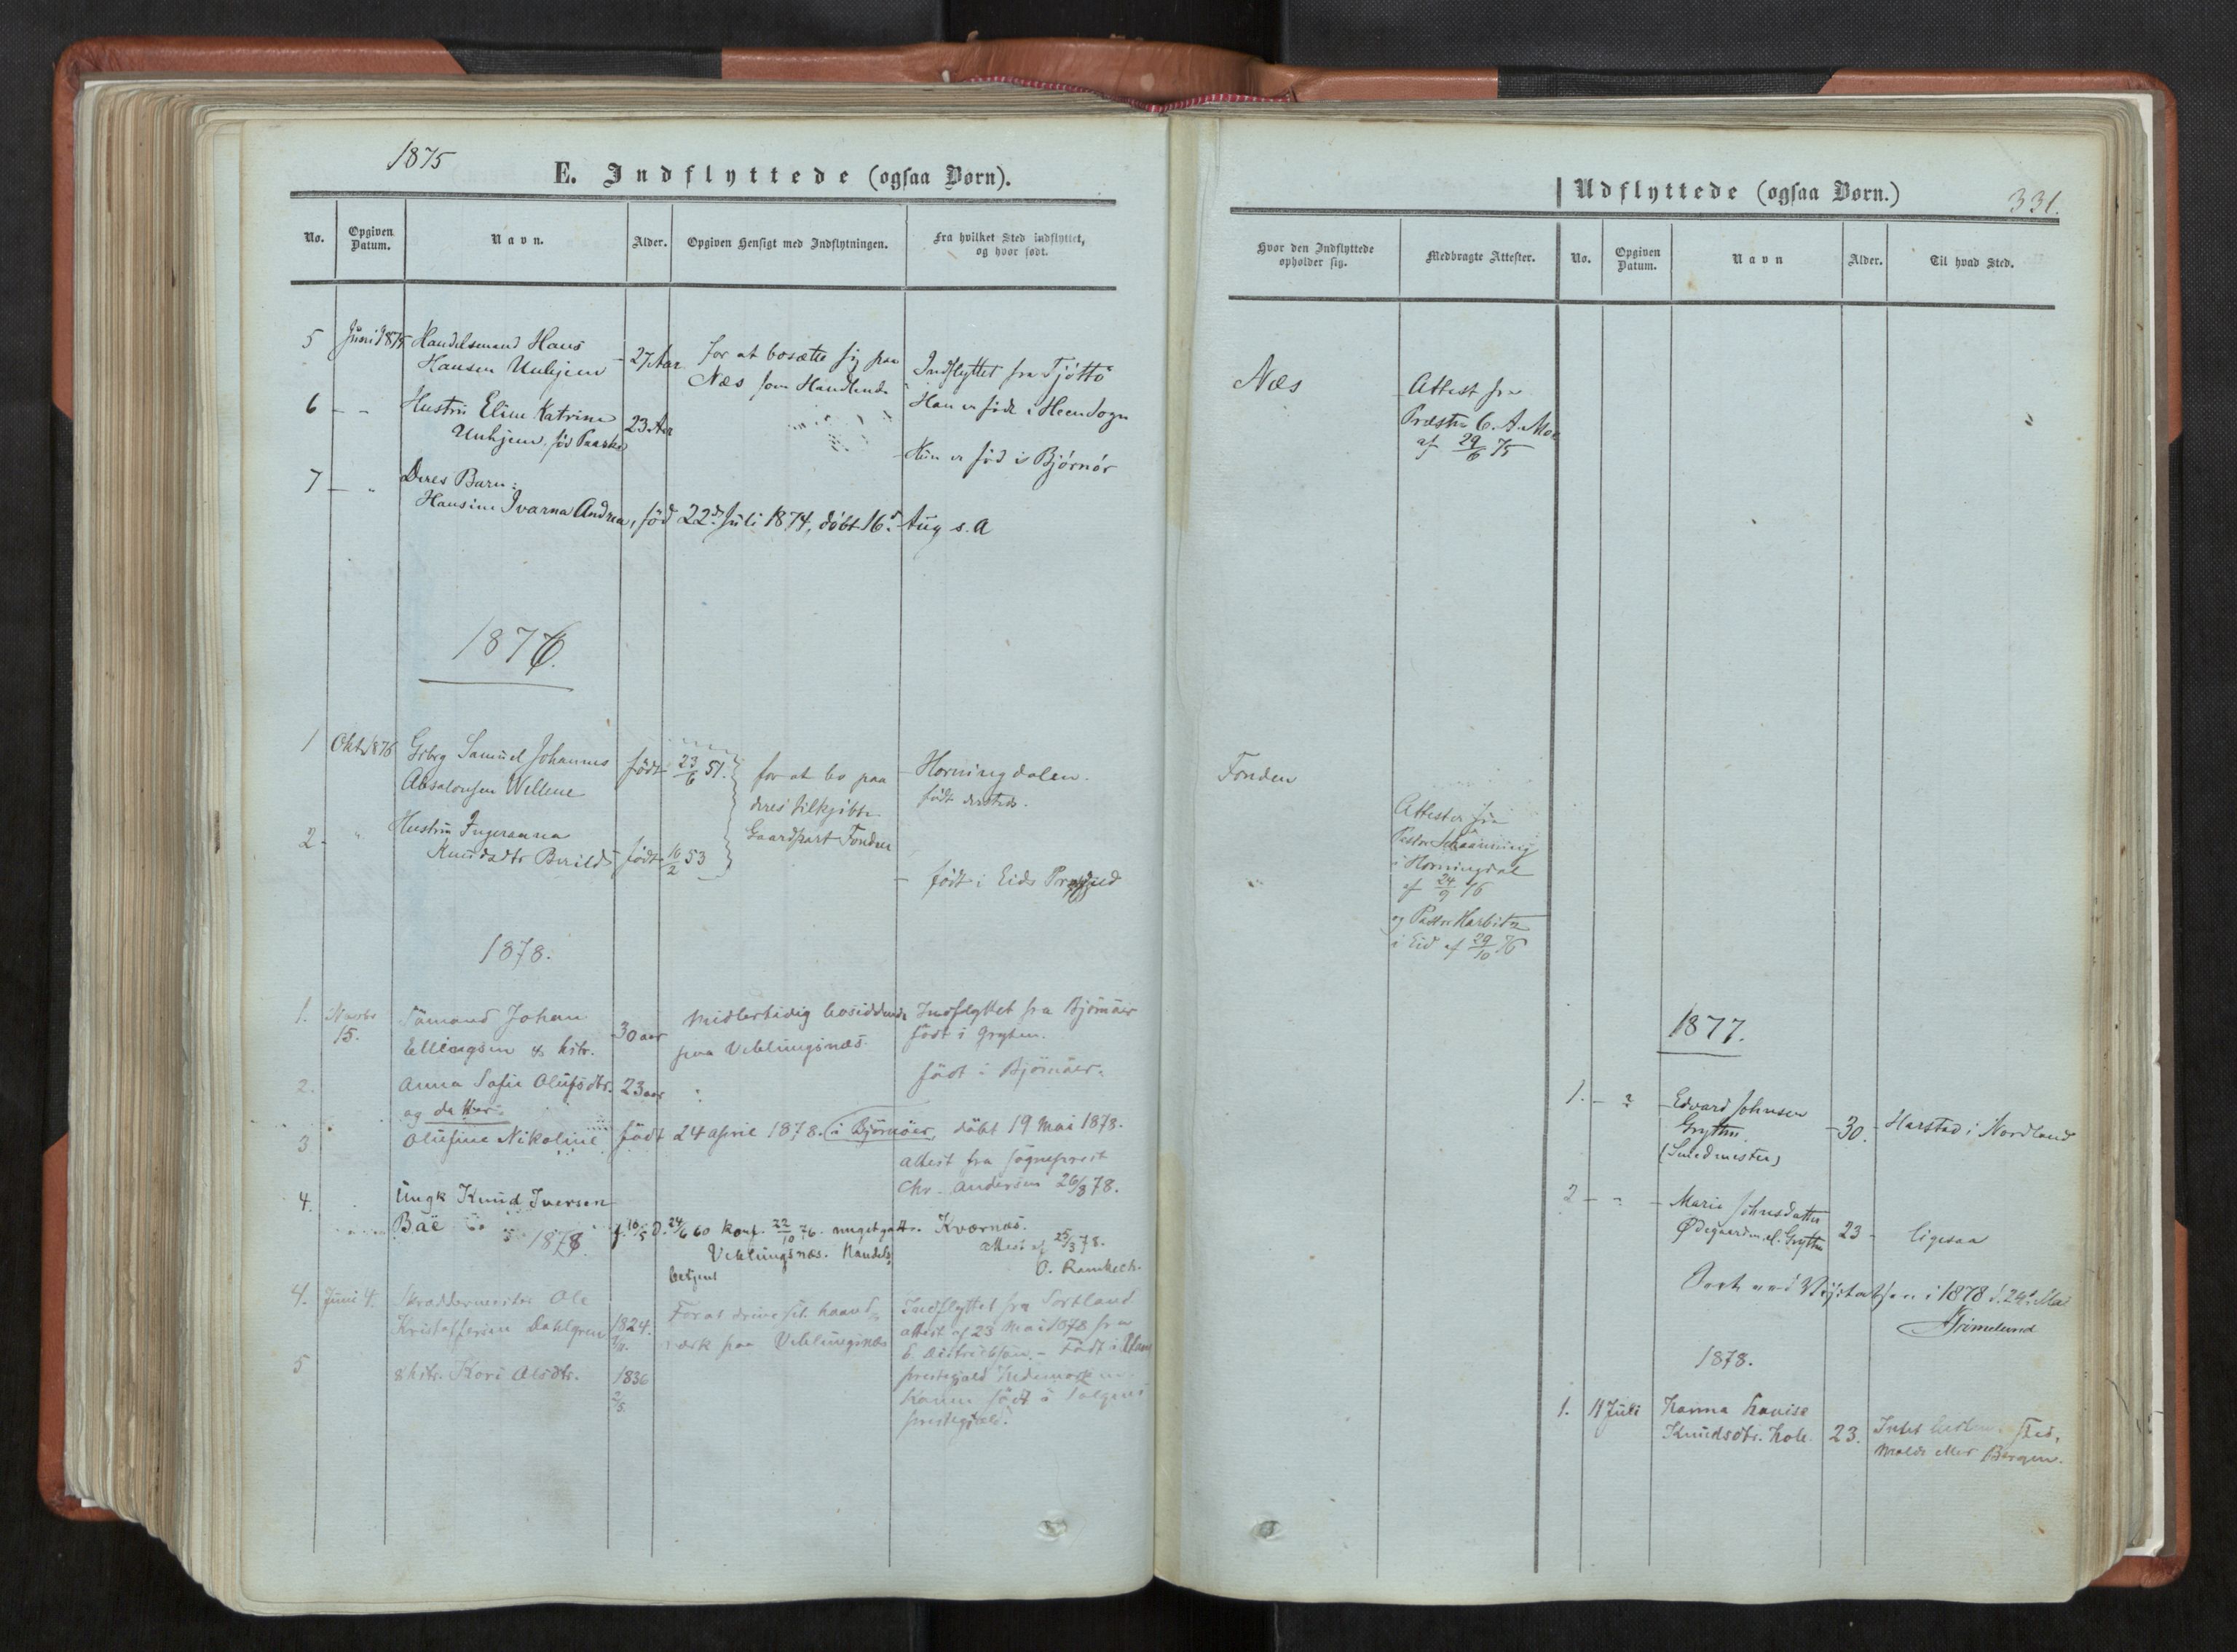 1875
E. Indflyttede (ogsaa Børn).
No.
Opgiven Datum.
Navn.
Alder.
Opgiven Hensigt med Indflytningen.
Fra hvilket Sted indflyttet,
og hvor født.
5 Juni 1875 Handelsmand Hans
Hansen Unhjem - 27 Aar
for at bosætte sig paa
Næs som Handlende
Indflyttet fra Tjøttø
Han er født i Heen Sogn
6 - - Hustru Eline Katrine 23 Aar
Unhjem, fød
Hun er fød i Bjørnør
7 - " Deres Barn:
Hansine Ivarna Andrea, fød 22d Juli 1874, døbt 16d Aug s. A
1876.
1 Oktb 1876 Gbrg Samuel Johannes født 23/6 51.
Absalonsen Wellene
for at bo paa
deres tilkjøbte
Gaardpart Fonden
Horningdalen.
født dersteds.
2 " Hustru Ingeranna
Knudsdtr født 16/2 53
født i Eids Prgjeld
1878.
1. 15. Sømand Johan 30 aar
Ellingsen & hstr.
Midlertidig bosiddende
paa Veblungsnæs.
Indflyttet fra Bjørnøer
født i Grytten.
2. Anna Sofie Olufsdtr. 23 aar
født i Bjørnøer.
og datter:
3 Olufine Nikoline født 24 april 1878. i Bjørnöer, døbt 19 Mai 1878.
attest fra sogneprest
Chr. Andersen 26/8 78.
4. Ungk Knud Iversen
Bäe f. 10/5 D. 24/6 60 konf. 22/10 76. Kværnæs.
1878.
Veblungsnæs. Handels
betjent
attest af 25/3 78.
4. Juni 4. Skræddermester Ole
Kristoffersen Dahlgren 1824.
For at drive sit haand-
værk paa Veblungsnæs
Indflyttet fra Sortland
attest af 23 Mai 1878 fra
Født i
5 & hstr. Kari Olsdtr. 1836
2/5.
prestegjeld Hedemarken
Konen født i
prestegjeld.
Udflyttede (ogsaa Børn.)
331.
Hvor den Indflyttede
opholder sig.
Medbragte Attester.
No.
Opgiven Datum.
Navn
Alder.
Til hvad Sted.
Næs
Attest fra
Præsten C. A. Moe
af 29/6 75
Fonden
Attester fra
Pastor Schaanning
i Horningdal
af 24/9 76
og Pastor Harbitz
i Eid af 29/10 76
1877.
1. - ? - Edvard Johnsen
Grytten 30. Harstad i Nordland
(Smedmester)
2 - - - Marie Johnsdatter
Ødegaarden el. Grytten 23 - ligesaa
i 1878 d. 24d Mai
Grimelund
1878.
1. 11 Juli Hanna Lovise
Knudsdtr. Hole. 23. Intet sted,
Molde eller Bergen.